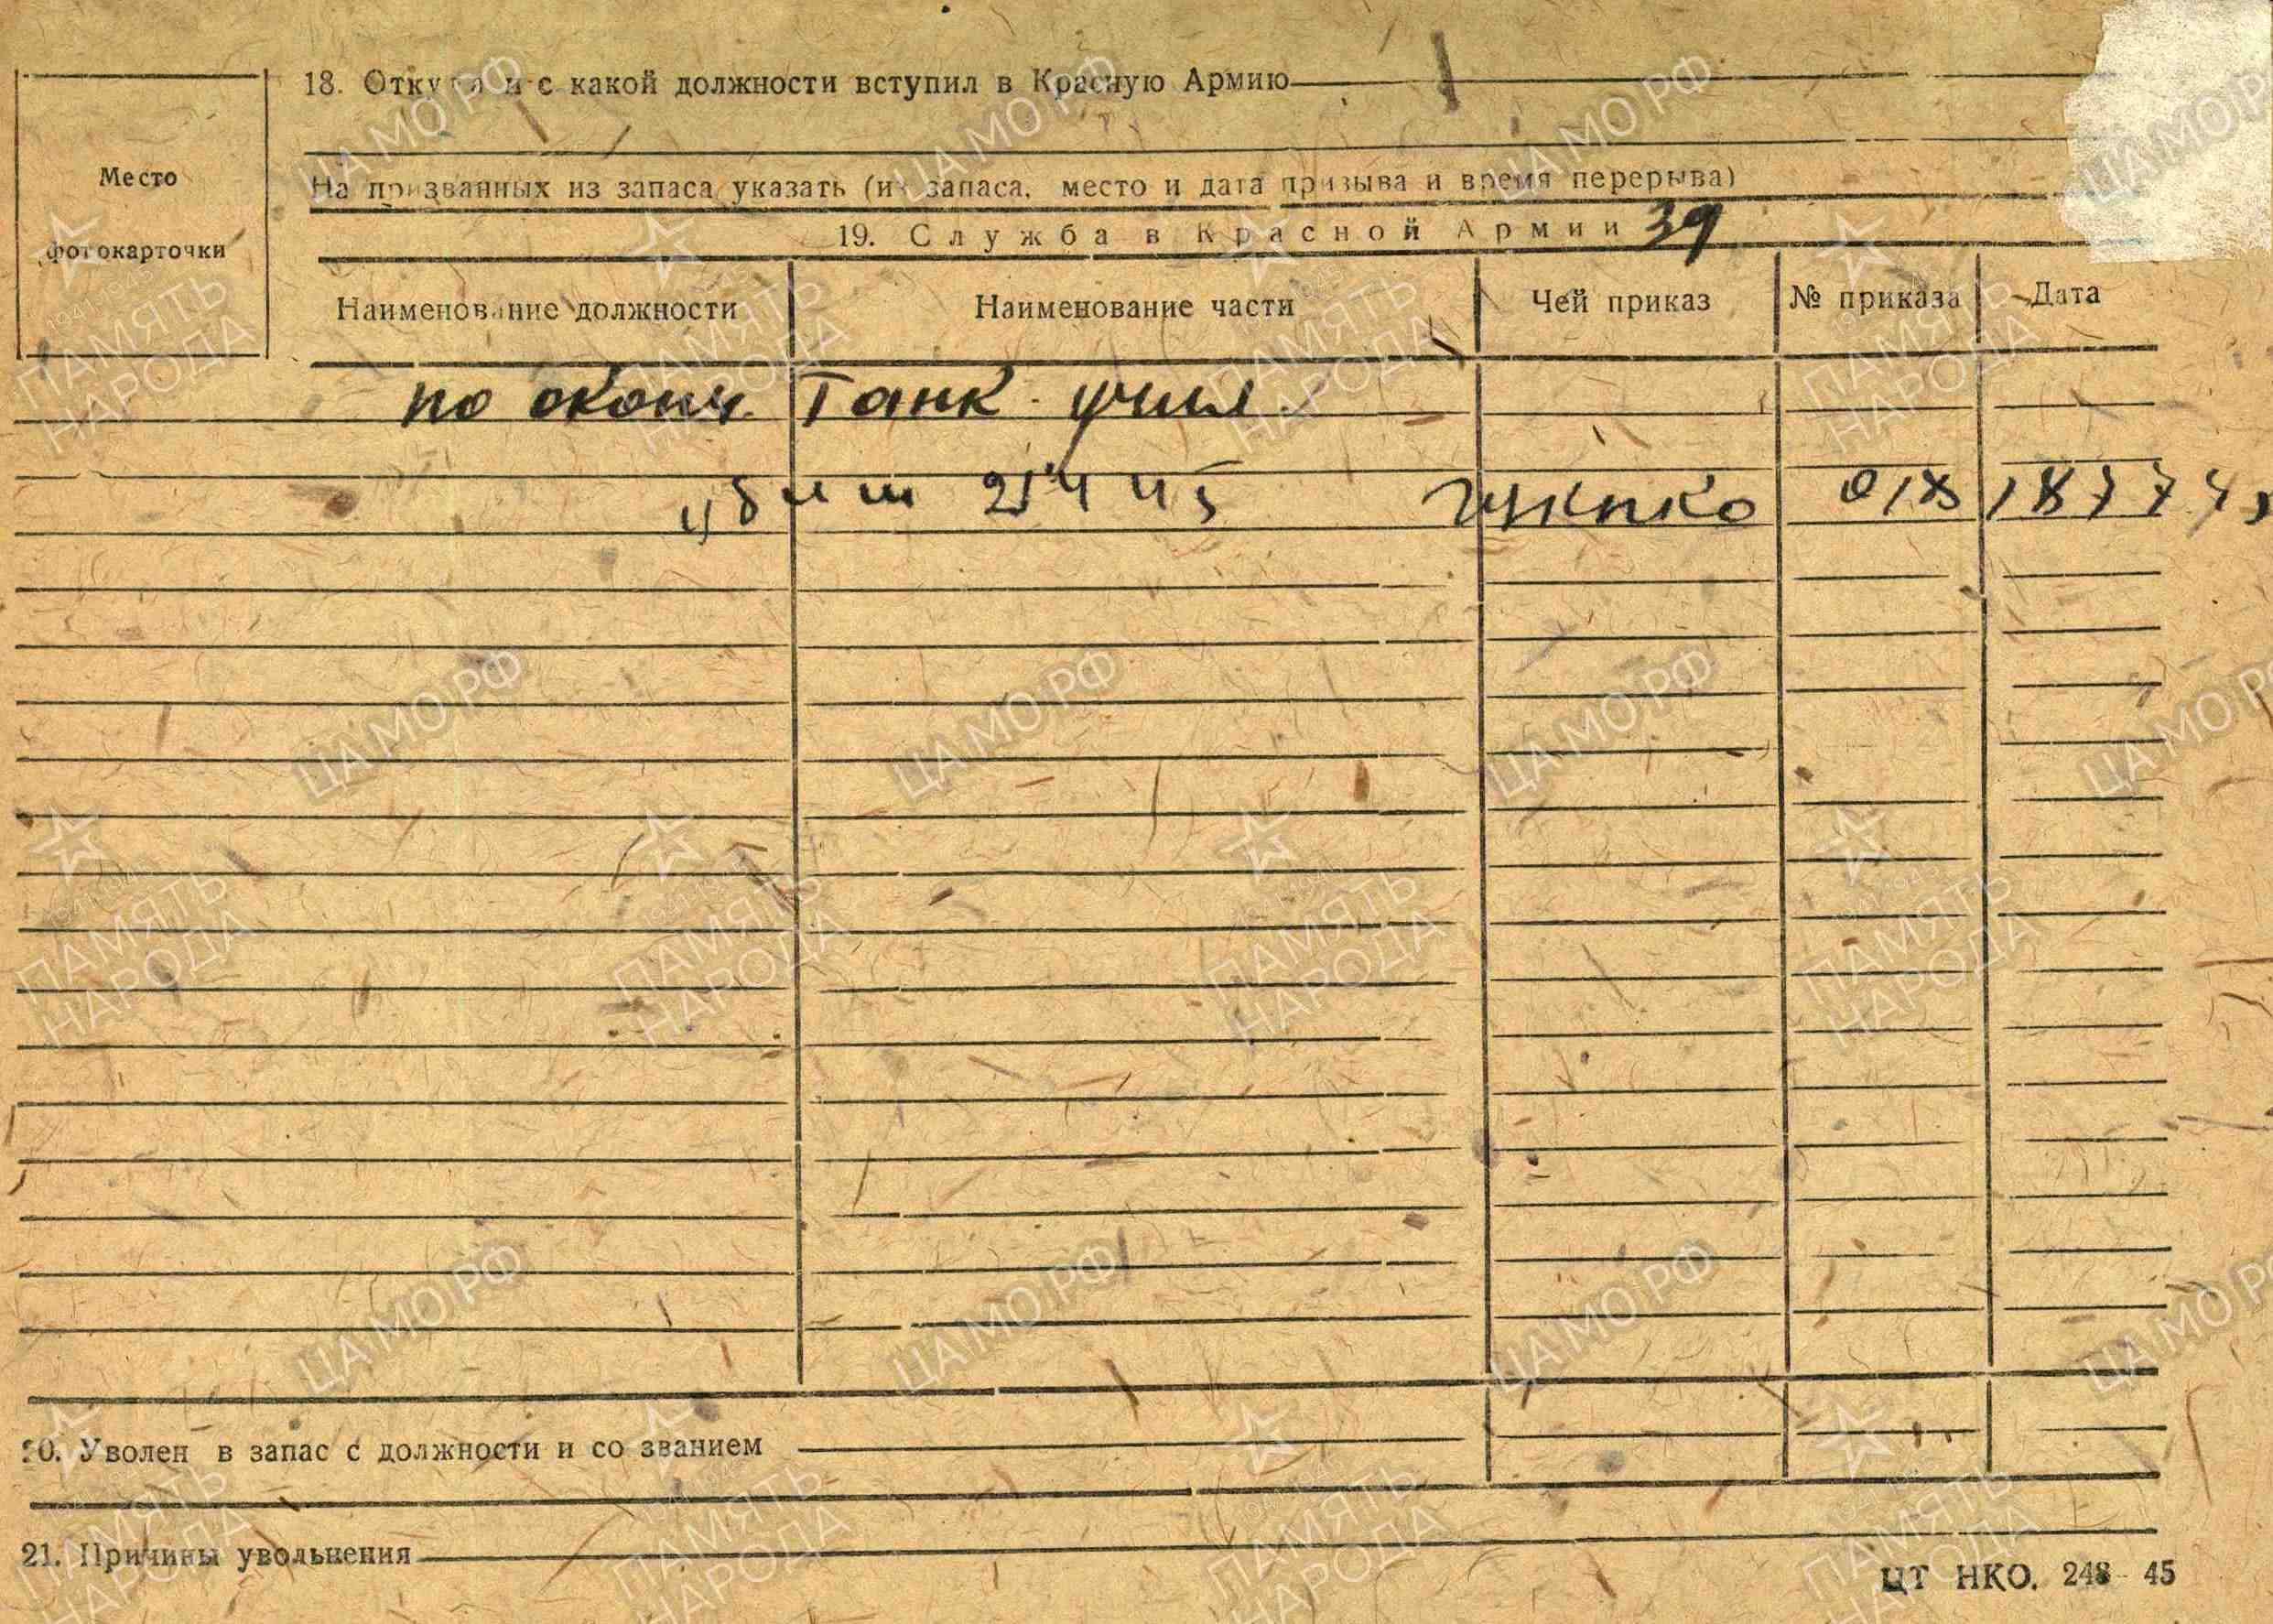 18. Откуда и с какой должности вступил в Красную Армию
На призванных из запаса указать (из запаса, место и дата призыва и время перерыва)
Место
фотокарточки
19. Служба в Красной Армии 39
Наименование должности Наименование части Чей приказ № приказа Дата
по оконч. Танк. учил
убит 21 4 45 ГУКНКО 018
20. Уволен в запас с должности и со званием
21. Причины увольнения
ЦТ НКО. 248—45
ЦА МО РФ
ПАМЯТЬ
НАРОДА